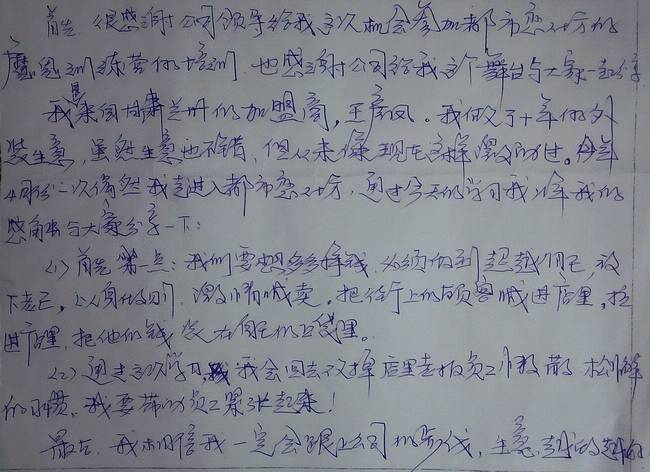 首先，很感谢公司领导给我这次机会参加都市恋衣坊的
魔鬼训练营的培训，也感谢公司给我这个舞台与大家一起分享
我是来自甘肃兰州的加盟商，王彦凤。我做了十年的外
装生意，虽然生意也不错，但从来像现在这样激动过。今年
4月份一次偶然我走进入都市恋衣坊，通过今天的学习我将我的
感角出与大家分享一下：
(1) 首先第一点：我们要想多多挣钱，必须做到超越自己，放
下老己，以身做则，激情喊卖。把街上的顾客喊进店里，拉
进店里，把他们的钱装在自己的口袋里。
(2) 通过这次学习，我会回去改掉店里老板员工懒散松懈
的习惯，我要带动员工紧张起来！
最后，我相信我一定会跟上公司的步伐，生意越的越好